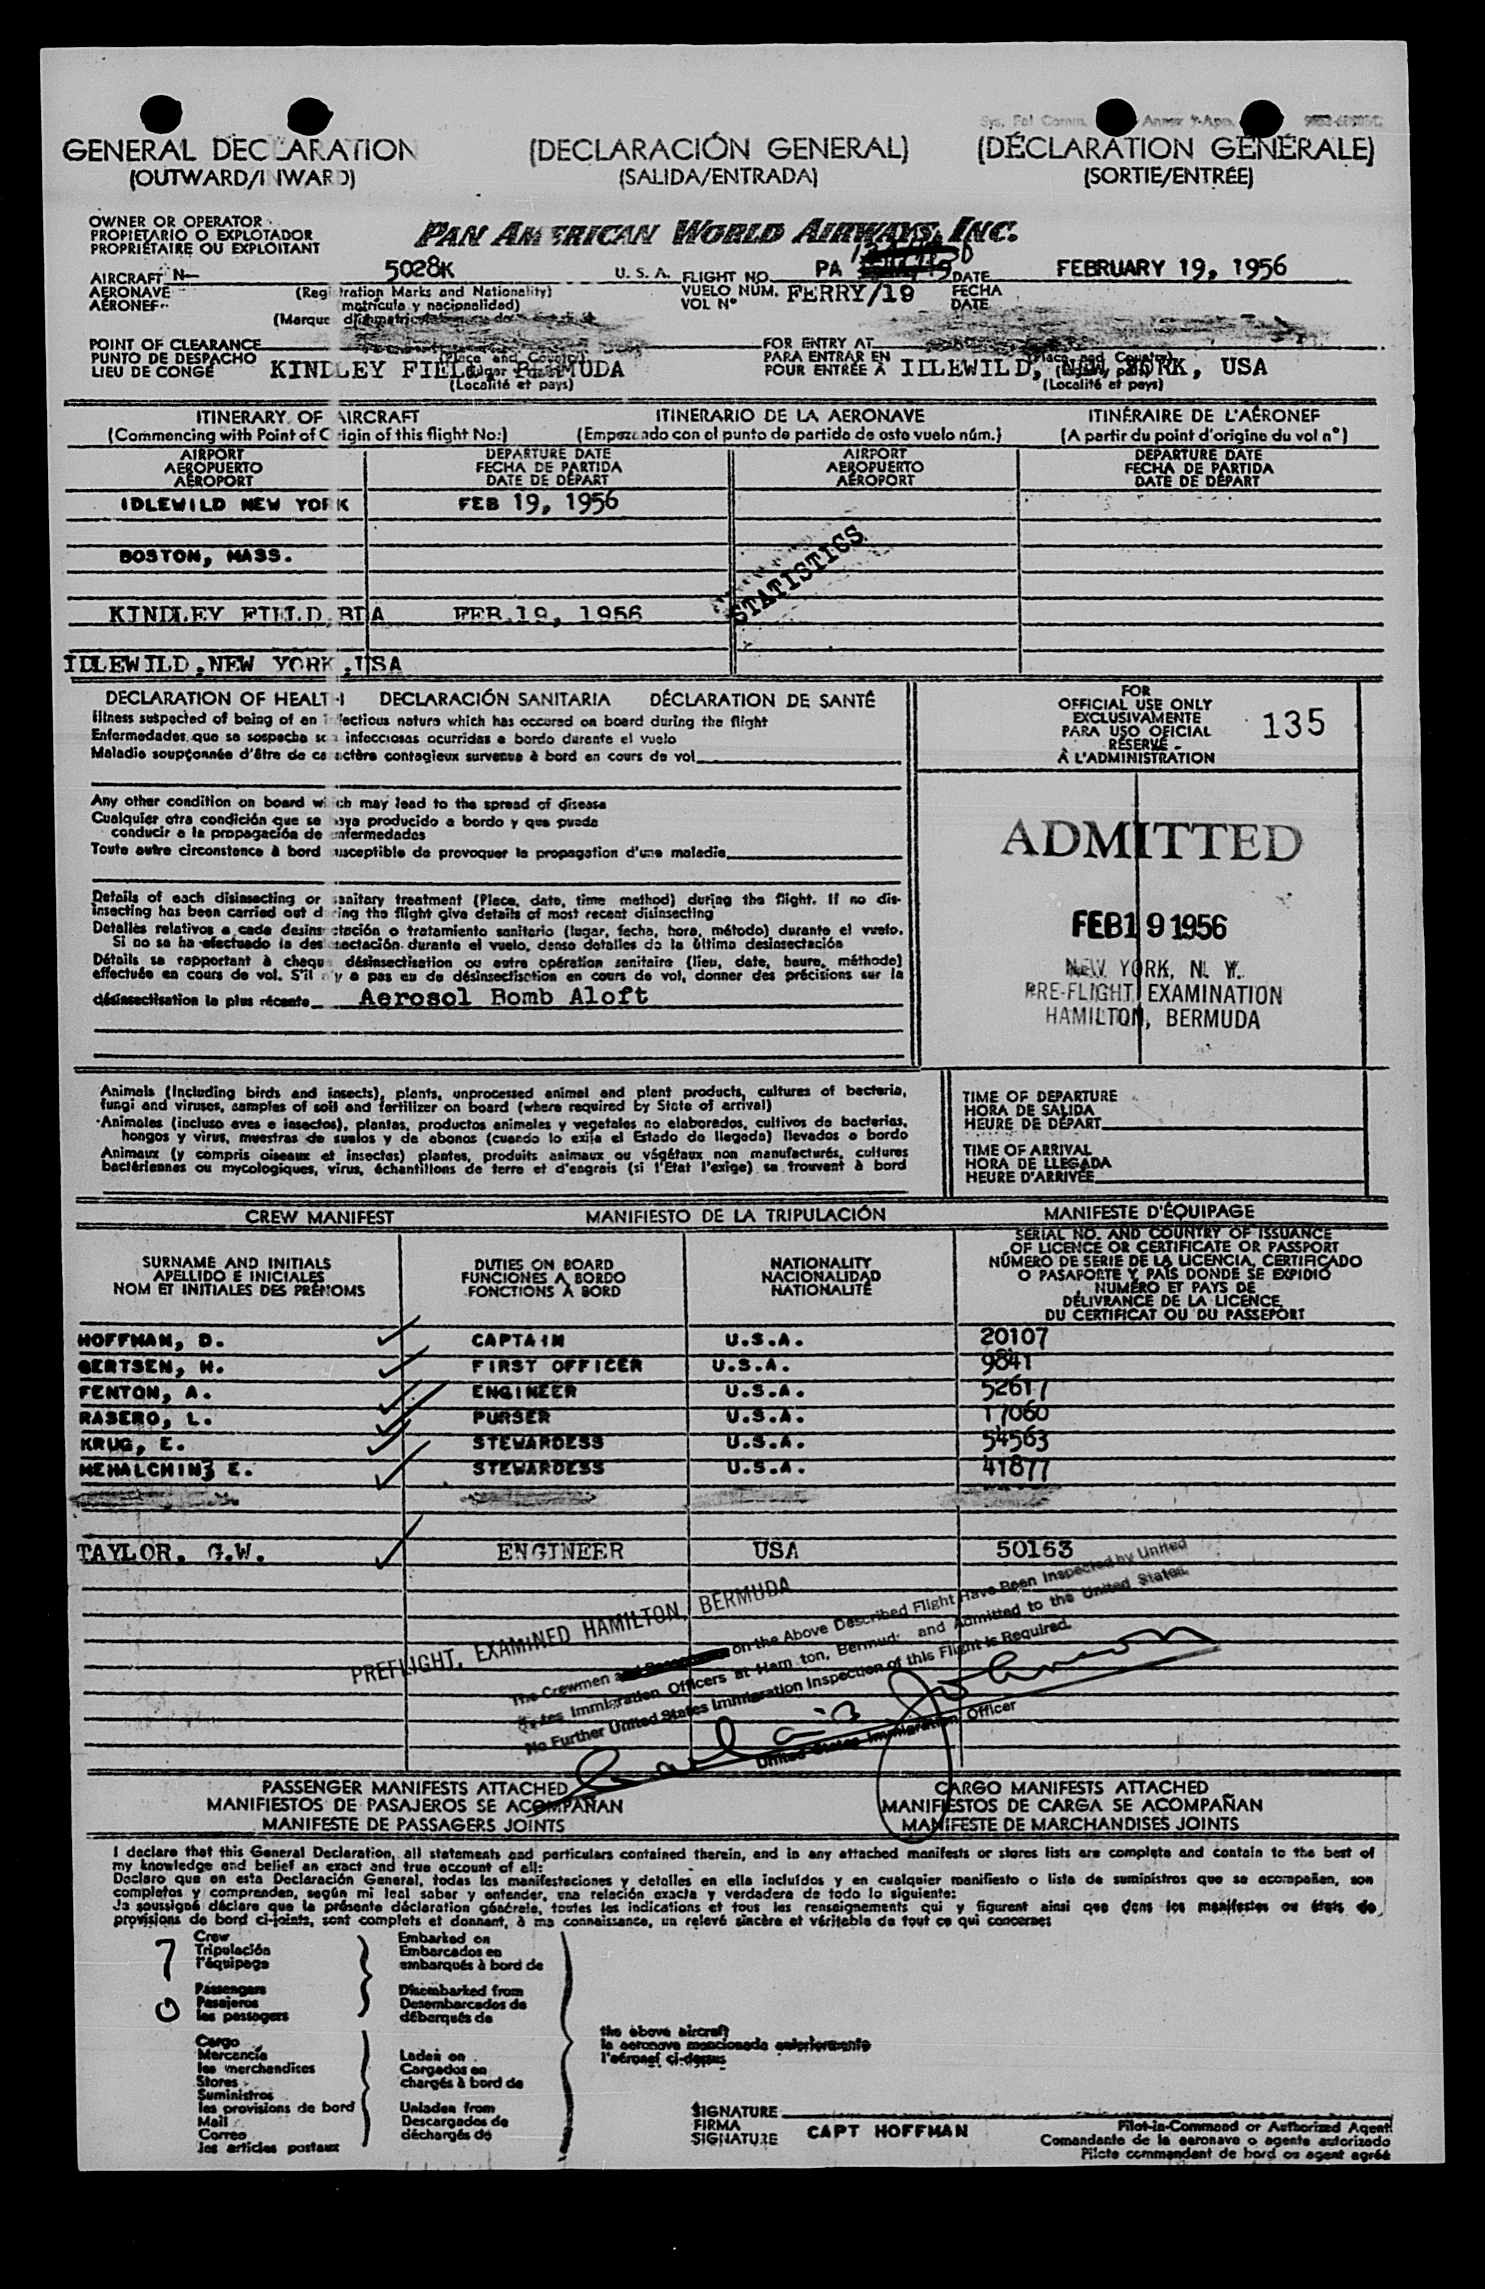 GENERAL DECLARATION
(OUTWARD/INWARD)
(DECLARACIÓN GENERAL)
(SALIDA/ENTRADA)
(DÉCLARATION GÉNÉRALE)
(SORTIE/ENTRÉE)
OWNER OR OPERATOR
PROPIETARIO O EXPLOTADOR
PROPRIÉTAIRE OU EXPLOITANT
PAN AMERICAN WORLD AIRWAYS, INC.
AIRCRAFT N— 5028K U. S. A. FLIGHT NO. PA DATE FEBRUARY 19, 1956
AERONAVE (Registration Marks and Nationality) VUELO NÚM. FERRY/19 FECHA
AÉRONEF (matrícula y nacionalidad) VOL N° DATE
(Marque
POINT OF CLEARANCE FOR ENTRY AT
PUNTO DE DESPACHO KINDLEY FIELD, BERMUDA PARA ENTRAR EN IDLEWILD, NEW YORK, USA
LIEU DE CONGÉ (Localité et pays) POUR ENTRÉE À (Localité et pays)
ITINERARY OF AIRCRAFT ITINERARIO DE LA AERONAVE ITINÉRAIRE DE L'AÉRONEF
(Commencing with Point of Origin of this flight No:) (Empezando con el punto de partida de este vuelo núm.) (A partir du point d'origine du vol n°)
AIRPORT DEPARTURE DATE AIRPORT DEPARTURE DATE
AEROPUERTO FECHA DE PARTIDA AEROPUERTO FECHA DE PARTIDA
AÉROPORT DATE DE DÉPART AÉROPORT DATE DE DÉPART
IDLEWILD NEW YORK FEB 19, 1956
BOSTON, MASS.
STATISTICS
KINDLEY FIELD,BDA FEB.19, 1956
IDLEWILD,NEW YORK,USA
DECLARATION OF HEALTH DECLARACIÓN SANITARIA DÉCLARATION DE SANTÉ
Illness suspected of being of an infectious nature which has occured on board during the flight
Enfermedades que se sospecha sean infecciosas ocurridas a bordo durante el vuelo
Maladie soupçonnée d'être de caractère contagieux survenue à bord en cours de vol
Any other condition on board which may lead to the spread of disease
Cualquier otra condición que se haya producido a bordo y que pueda
conducir a la propagación de enfermedades
Toute autre circonstance à bord susceptible de provoquer la propagation d'une maladie
Details of each disinsecting or sanitary treatment (Place, date, time method) during the flight. If no dis-
insecting has been carried out during the flight give details of most recent disinsecting
Detalles relativos a cada desinsectación o tratamiento sanitario (lugar, fecha, hora, método) durante el vuelo.
Si no se ha efectuado la desinsectación durante el vuelo, dense detalles de la última desinsectación
Détails se rapportant à chaque désinsectisation ou autre opération sanitaire (lieu, date, heure, méthode)
effectuée en cours de vol. S'il n'y a pas eu de désinsectisation en cours de vol, donner des précisions sur la
désinsectisation la plus récente Aerosol Bomb Aloft
FOR
OFFICIAL USE ONLY
EXCLUSIVAMENTE
PARA USO OFICIAL
RÉSERVÉ
À L'ADMINISTRATION
135
ADMITTED
FEB 19 1956
NEW YORK, N. Y.
PRE-FLIGHT EXAMINATION
HAMILTON, BERMUDA
Animals (including birds and insects), plants, unprocessed animal and plant products, cultures of bacteria,
fungi and viruses, samples of soil and fertilizer on board (where required by State of arrival)
Animales (incluso aves e insectos), plantas, productos animales y vegetales no elaborados, cultivos de bacterias,
hongos y virus, muestras de suelos y de abonos (cuando lo exija el Estado de llegada) llevados a bordo
Animaux (y compris oiseaux et insectes) plantes, produits animaux ou végétaux non manufacturés, cultures
bactériennes ou mycologiques, virus, échantillons de terre et d'engrais (si l'Etat l'exige) se trouvant à bord
TIME OF DEPARTURE
HORA DE SALIDA
HEURE DE DÉPART
TIME OF ARRIVAL
HORA DE LLEGADA
HEURE D'ARRIVÉE
CREW MANIFEST MANIFIESTO DE LA TRIPULACIÓN MANIFESTE D'ÉQUIPAGE
SURNAME AND INITIALS
APELLIDO E INICIALES
NOM ET INITIALES DES PRÉNOMS
DUTIES ON BOARD
FUNCIONES A BORDO
FONCTIONS À BORD
NATIONALITY
NACIONALIDAD
NATIONALITÉ
SERIAL NO. AND COUNTRY OF ISSUANCE
OF LICENCE OR CERTIFICATE OR PASSPORT
NÚMERO DE SERIE DE LA LICENCIA, CERTIFICADO
O PASAPORTE Y PAÍS DONDE SE EXPIDIÓ
NUMÉRO ET PAYS DE
DÉLIVRANCE DE LA LICENCE,
DU CERTIFICAT OU DU PASSEPORT
HOFFMAN, D. CAPTAIN U.S.A. 20107
GERTSEN, H. FIRST OFFICER U.S.A. 9841
FENTON, A. ENGINEER U.S.A. 52617
RASERO, L. PURSER U.S.A. 17060
KRUG, E. STEWARDESS U.S.A. 54563
MEHALCHIN3 E. STEWARDESS U.S.A. 41877
TAYLOR, G.W. ENGINEER USA 50163
PREFLIGHT, EXAMINED HAMILTON, BERMUDA
The Crewmen and Passengers on the Above Described Flight Have Been Inspected by United
States Immigration Officers at Hamilton, Bermuda and Admitted to the United States.
No Further United States Immigration Inspection of this Flight is Required.
United States Immigration Officer
PASSENGER MANIFESTS ATTACHED
MANIFIESTOS DE PASAJEROS SE ACOMPAÑAN
MANIFESTE DE PASSAGERS JOINTS
CARGO MANIFESTS ATTACHED
MANIFIESTOS DE CARGA SE ACOMPAÑAN
MANIFESTE DE MARCHANDISES JOINTS
I declare that this General Declaration, all statements and particulars contained therein, and in any attached manifests or stores lists are complete and contain to the best of
my knowledge and belief an exact and true account of all:
Declaro que en esta Declaración General, todas las manifestaciones y detalles en ella incluídos y en cualquier manifiesto o lista de suministros que se acompañan, son
completos y comprenden, según mi leal saber y entender, una relación exacta y verdadera de todo lo siguiente:
Je soussigné déclare que la présente déclaration générale, toutes les indications et tous les renseignements qui y figurent ainsi que dans les manifestes ou états de
provisions de bord ci-joints, sont complets et donnent, à ma connaissance, un relevé sincère et véritable de tout ce qui concerne:
7
Crew
Tripulación
l'équipage
0
Passengers
Pasajeros
les passagers
Embarked on
Embarcados en
embarqués à bord de
Disembarked from
Desembarcados de
débarqués de
Cargo
Mercancía
les merchandises
Stores
Suministros
les provisions de bord
Mail
Correo
les articles postaux
Laden on
Cargados en
chargés à bord de
Unladen from
Descargados de
déchargés de
the above aircraft
la aeronave mencionada anteriormente
l'aéronef ci-dessus
SIGNATURE
FIRMA
SIGNATURE
CAPT HOFFMAN
Pilot-in-Command or Authorized Agent
Comandante de la aeronave o agente autorizado
Pilote commandant de bord ou agent agréé